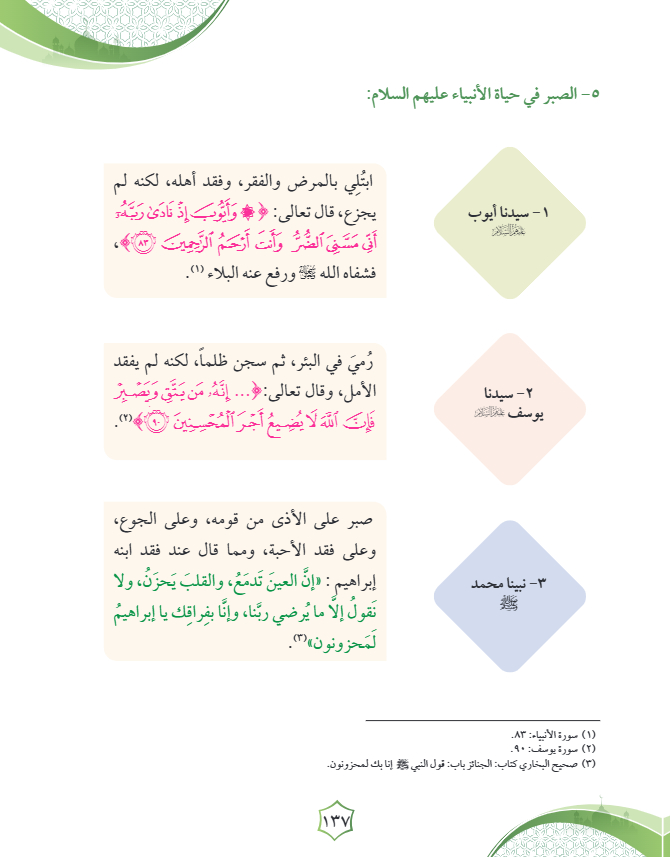 ٥- الصبر في حياة الأنبياء عليهم السلام:
١- سيدنا أيوب
عليه السلام
ابتُلِي بالمرض والفقر، وفقد أهله، لكنه لم
يجزع، قال تعالى: ﴿۞ وَأَيُّوبَ إِذْ نَادَىٰ رَبَّهُۥٓ
أَنِّي مَسَّنِيَ ٱلضُّرُّ وَأَنتَ أَرْحَمُ ٱلرَّٰحِمِينَ ۝٨٣﴾،
فشفاه الله ﷻ ورفع عنه البلاء (١).
٢- سيدنا
يوسف عليه السلام
رُميَ في البئر، ثم سجن ظلماً، لكنه لم يفقد
الأمل، وقال تعالى:﴿... إِنَّهُۥ مَن يَتَّقِ وَيَصْبِرْ
فَإِنَّ ٱللَّهَ لَا يُضِيعُ أَجْرَ ٱلْمُحْسِنِينَ ۝٩٠﴾(٢).
٣- نبينا محمد
ﷺ
صبر على الأذى من قومه، وعلى الجوع،
وعلى فقد الأحبة، ومما قال عند فقد ابنه
إبراهيم : «إنَّ العينَ تَدمَعُ، والقلبَ يَحزَنُ، ولا
نَقولُ إلَّا ما يُرضي ربَّنا، وإنَّا بفِراقِك يا إبراهيمُ
لَمَحزونون»(٣).
(١) سورة الأنبياء: ٨٣.
(٢) سورة يوسف: ٩٠.
(٣) صحيح البخاري كتاب: الجنائز باب: قول النبي ﷺ إنا بك لمحزونون.
١٣٧